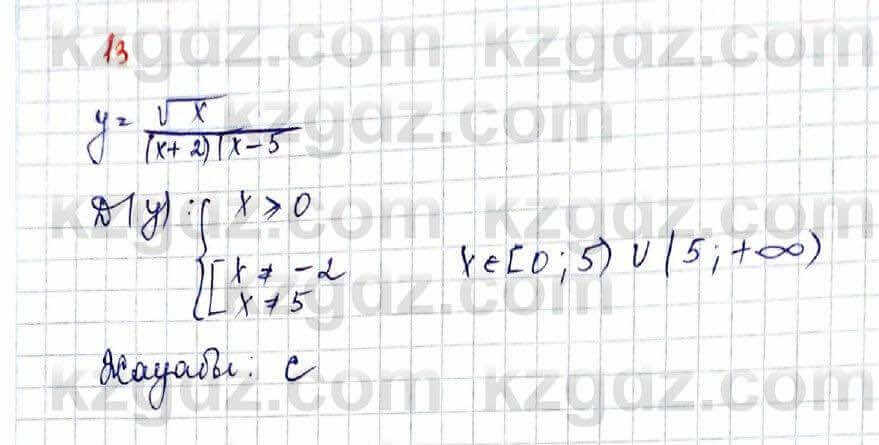 13
y = √x / (x+2)(x-5
D(y): { x ≥ 0
[ x ≠ -2
x ≠ 5
x ∈ [0; 5) ∪ (5; +∞)
Жауабы: c
kzgdz.com kzgdz.com
kzgdz.com kzgdz.com
kzgdz.com kzgdz.com
kzgdz.com kzgdz.com
kzgdz.com kzgdz.com